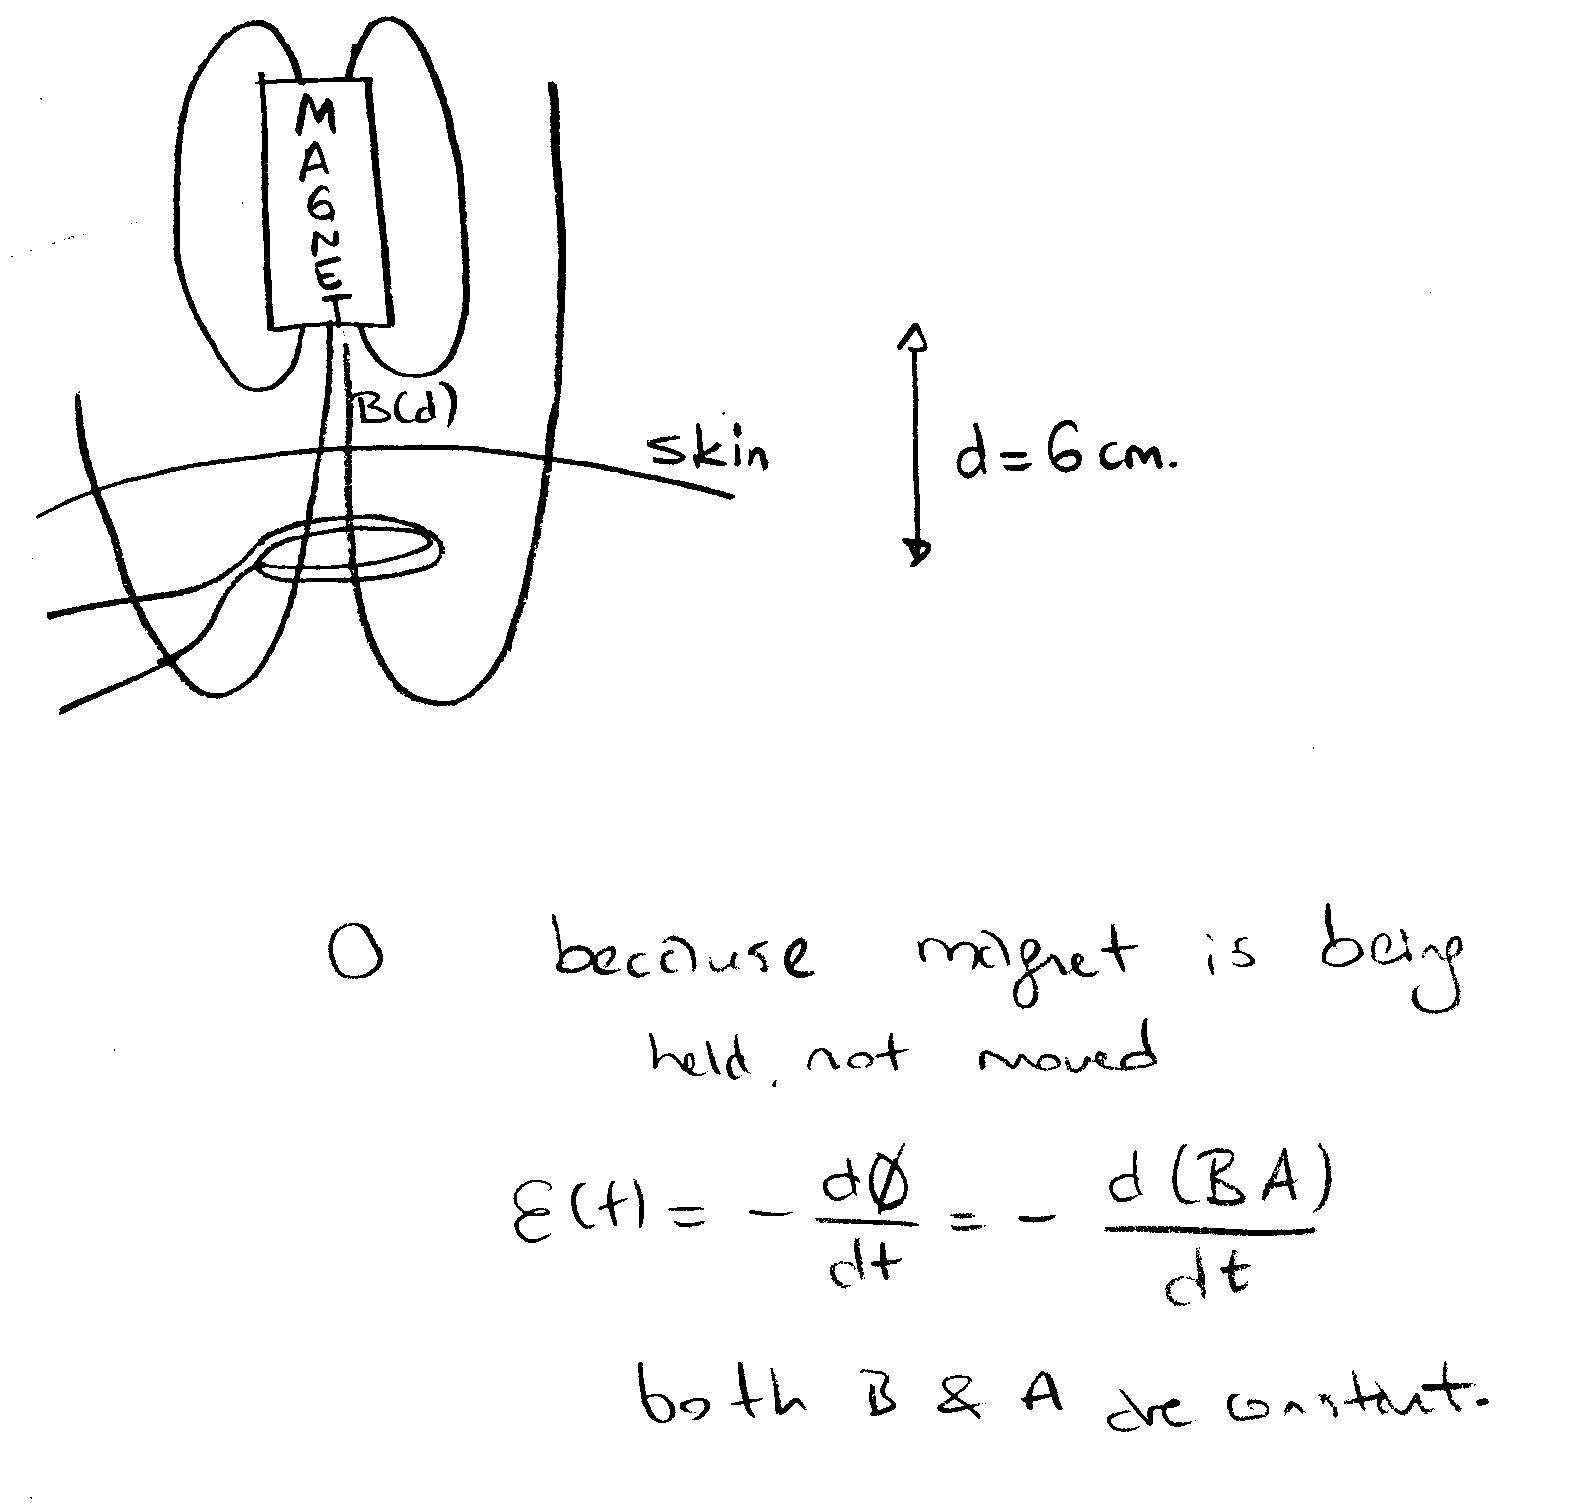 MAGNET
B(d)
skin
d = 6 cm.
0 because magnet is being
held, not moved
ℰ(t) = - dø/dt = - d(BA)/dt
both B & A are constant.